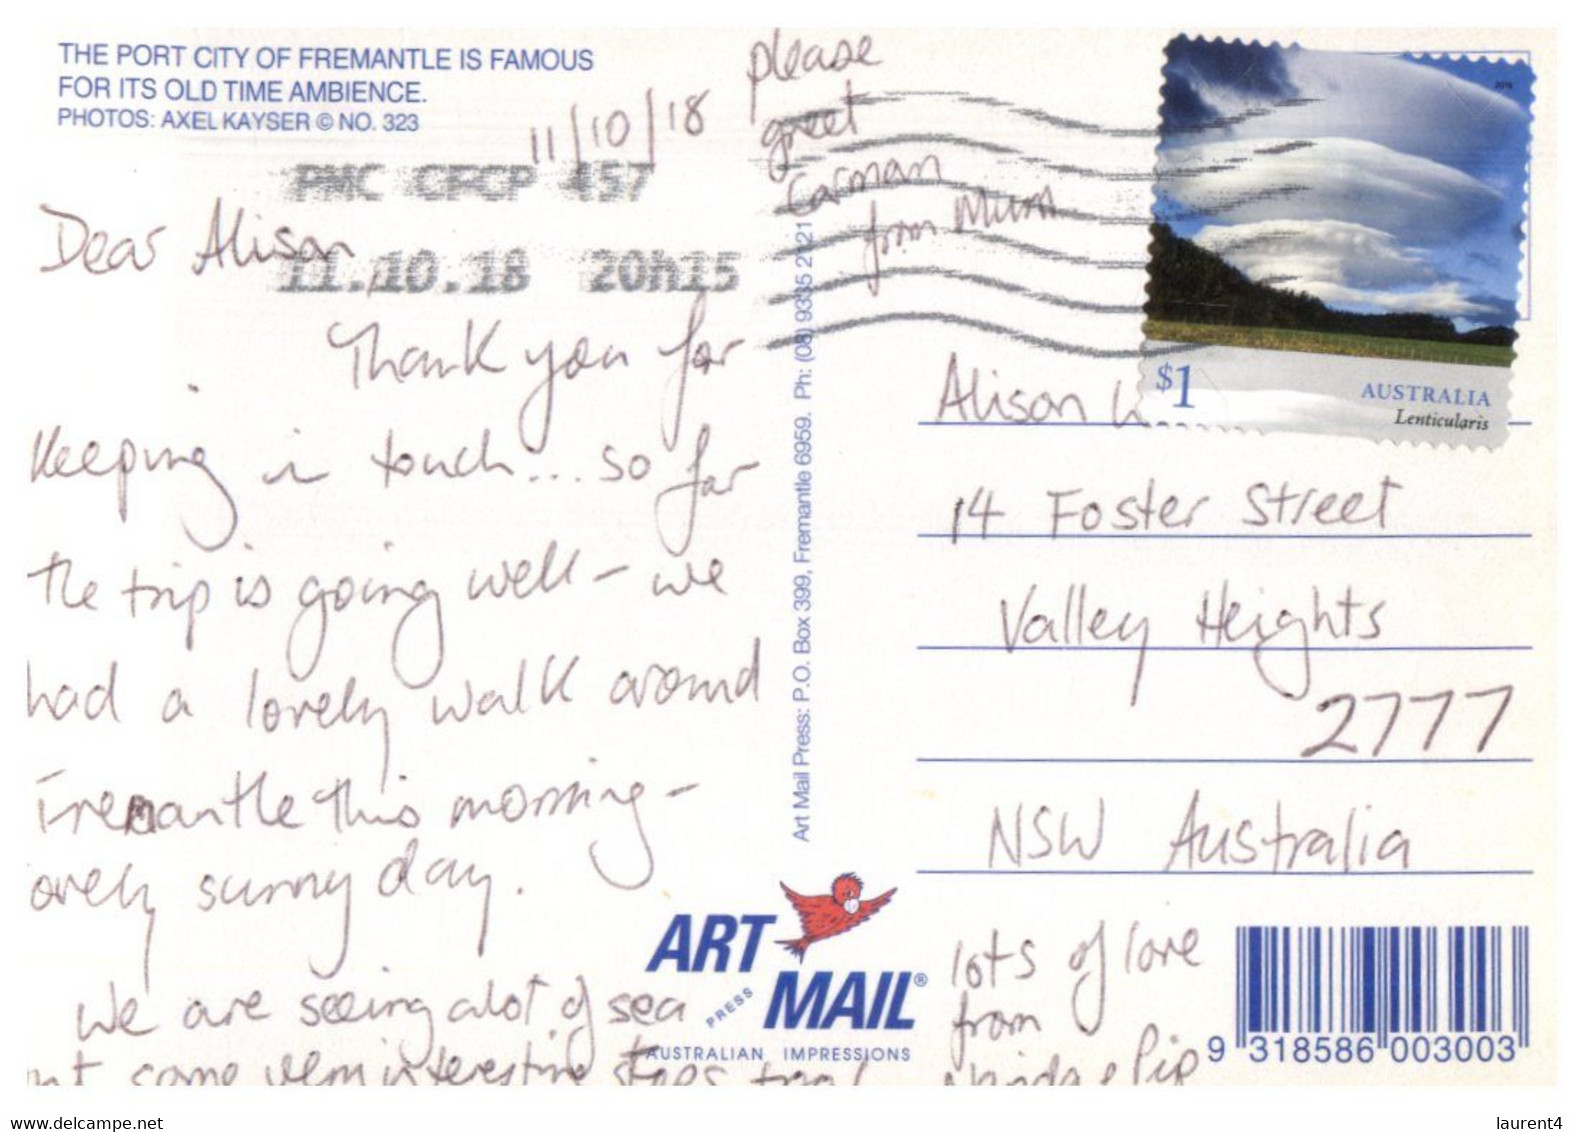 THE PORT CITY OF FREMANTLE IS FAMOUS
FOR ITS OLD TIME AMBIENCE.
PHOTOS: AXEL KAYSER © NO. 323
11/10/18
PMC CFCP 457
11.10.18 20h15
please
greet
Carman
from Mum
Dear Alison
Thank you for
keeping in touch... so far
the trip is going well - we
had a lovely walk around
Fremantle this morning -
ovely sunny day.
We are seeing alot of sea
some very interesting
Art Mail Press: P.O. Box 399, Fremantle 6959. Ph: (08) 9335 2121
$1
AUSTRALIA
Lenticularis
Alison
14 Foster Street
Valley Heights
2777
NSW Australia
ART
PRESS
MAIL®
AUSTRALIAN IMPRESSIONS
lots of love
from
Pip
9 318586 003003
www.delcampe.net
laurent4